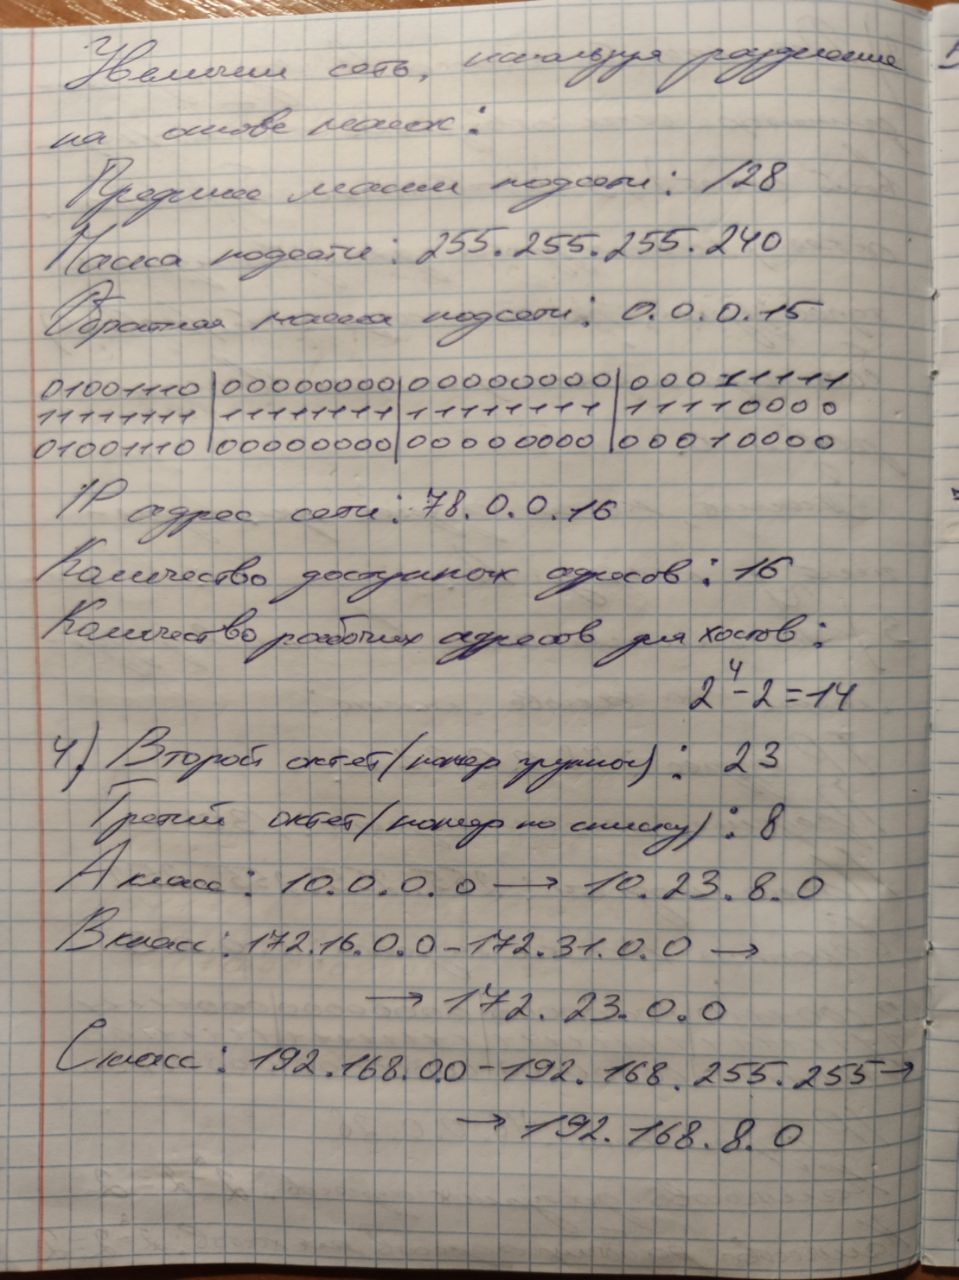 Увеличим сеть, используя разделение
на основе масок:
Префикс маски подсети: /28
Маска подсети: 255.255.255.240
Обратная маска подсети: 0.0.0.15
01001110|00000000|00000000|00011111
11111111|11111111|11111111|11110000
01001110|00000000|00000000|00010000
IP адрес сети: 78.0.0.16
Количество доступных адресов: 16
Количество рабочих адресов для хостов:
2⁴-2=14
4) Второй октет (номер группы): 23
Третий октет (номер по списку): 8
А класс: 10.0.0.0 → 10.23.8.0
В класс: 172.16.0.0 - 172.31.0.0 →
→ 172.23.0.0
С класс: 192.168.0.0 - 192.168.255.255 →
→ 192.168.8.0